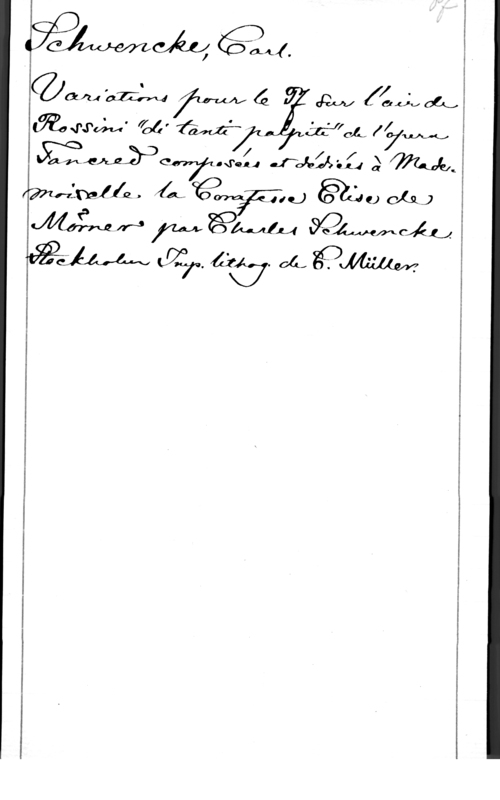 Schwencke, Carl.
Variations pour le Pf sur l'air de
Rossini "di tanti palpiti" de l'opera
Tancred composées et dédiées à Made-
moiselle. la Comtesse Elise de
Mörner par Charles Schwencke.
Stockholm Imp. lithog. de C. Müller.